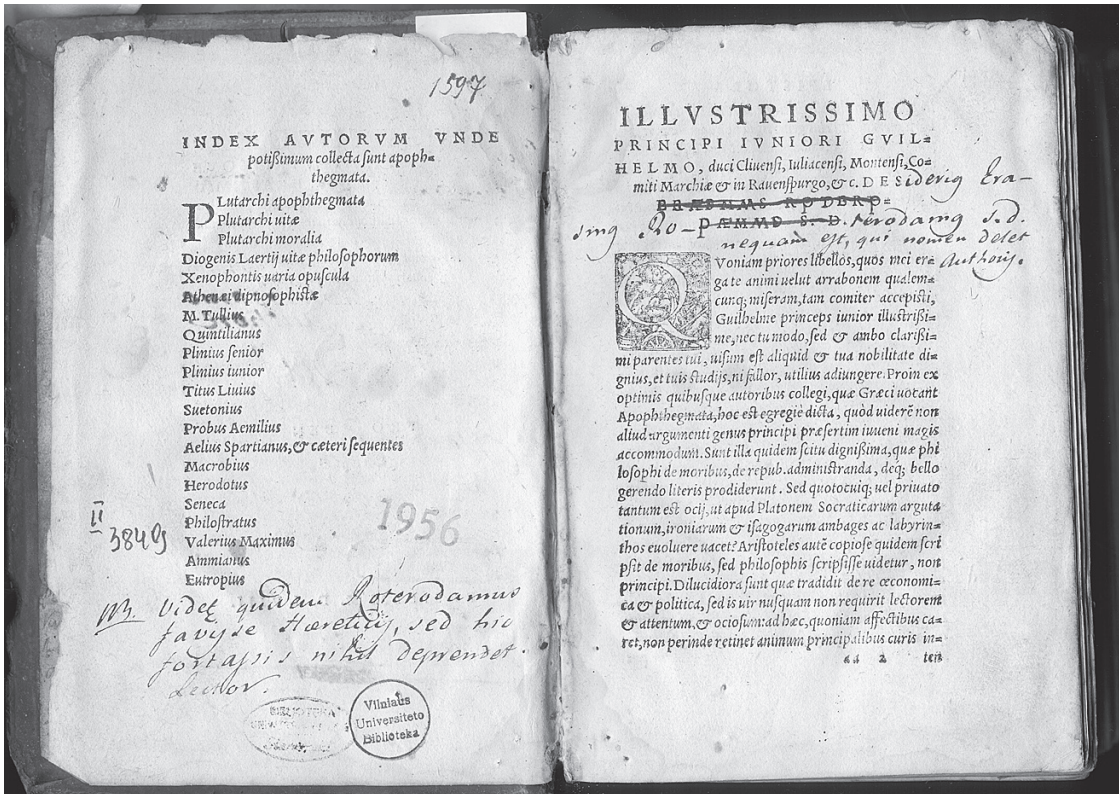 1597
INDEX AVTORVM VNDE
potißimum collecta sunt apoph=
thegmata.
PLutarchi apophthegmata
Plutarchi uitæ
Plutarchi moralia
Diogenis Laertij uitæ philosophorum
Xenophontis uaria opuscula
Athenæi dipnosophistæ
M. Tullius
Quintilianus
Plinius senior
Plinius iunior
Titus Liuius
Suetonius
Probus Aemilius
Aelius Spartianus, & cæteri sequentes
Macrobius
Herodotus
Seneca
Philostratus
Valerius Maximus
Ammianus
Eutropius
1956
II
38485
NB. Videt quidem Roterodamus
favisse Hæreticis, sed hic
fortassis nihil deprendet
Lector.
BIBLIOTEKA
Vilniaus
Universiteto
Biblioteka
ILLVSTRISSIMO
PRINCIPI IVNIORI GVIL=
HELMO, duci Cliuensi, Iuliacensi, Montensi, Co=
miti Marchiæ & in Rauenspurgo, &c. DESiderig Era-
smg Ro-terodamg s.d.
nequam est, qui nomen delet
Authoris.
QVoniam priores libellos, quos mei er=
ga te animi uelut arrabonem qualem=
cunq; miseram, tam comiter accepisti,
Guilhelme princeps iunior illustrißi=
me, nec tu modo, sed & ambo clarißi=
mi parentes tui, uisum est aliquid & tua nobilitate di=
gnius, et tuis studijs, ni fallor, utilius adiungere. Proin ex
optimis quibusque autoribus collegi, quæ Græci uocant
Apophthegmata, hoc est egregie dicta, quòd uiderē non
aliud argumenti genus principi præsertim iuueni magis
accommodum. Sunt illa quidem scitu dignißima, quæ phi
losophi de moribus, de repub. administranda, deq; bello
gerendo literis prodiderunt. Sed quotocuiq; uel priuato
tantum est ocij, ut apud Platonem Socraticarum arguta
tionum, ironiarum & isagogarum ambages ac labyrin=
thos euoluere uacet? Aristoteles autē copiose quidem scri
psit de moribus, sed philosophis scripsisse uidetur, non
principi. Dilucidiora sunt quæ tradidit de re œconomi=
ca & politica, sed is uir nusquam non requirit lectorem
& attentum, & ociosum: ad hæc, quoniam affectibus ca=
ret, non perinde retinet animum principalibus curis in=
aa 2 ten